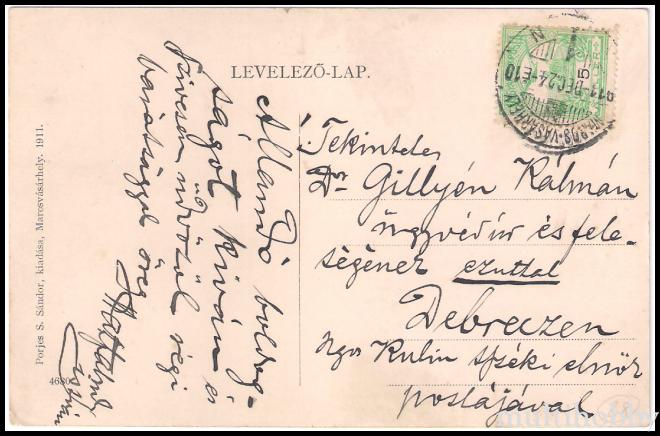 LEVELEZŐ-LAP.
Porjes S. Sándor, kiadása, Marosvásárhely. 1911.
Állandó boldog-
ságot kíván és
szívesen üdvözöl régi
barátsággal öreg
István
Tekintetes
Dr Gillyén Kálmán
ügyvéd úr és fele-
ségének ezuttal
Debreczen
Ngos Kulin itszéki elnök
postájával
911-DEC.24-E10
MAROS-VÁSÁRHELY
multihobby